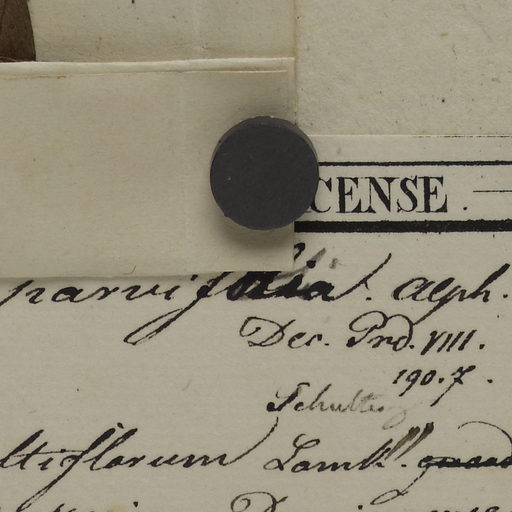 CENSE.
parvifolia. Alph.
Dec. Prd. VIII.
190. 7.
Schultes
ltiflorum Lamk.